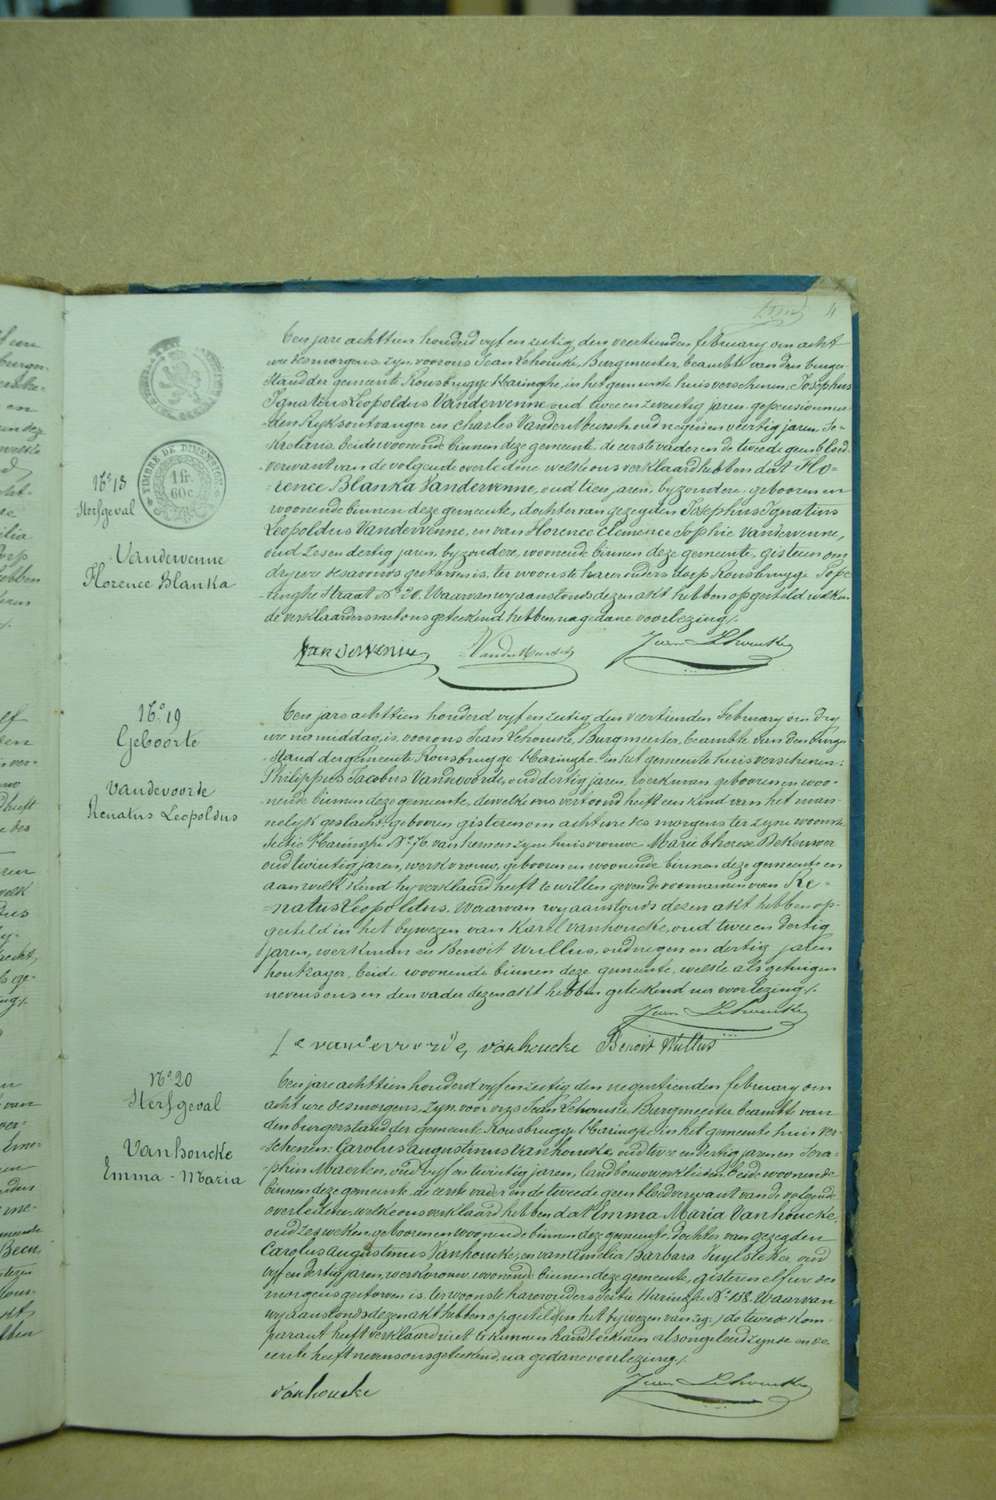 4
TIMBRE DE DIMENSION
1 fr.
60 c.
N.º 18
Sterfgeval
Vandervenne
Florence Blanka
Een jare achttien honderd vyf en zestig den veertienden february om acht
ure des morgens, zyn voor ons Jean Lehoucke, Burgmeester, beambte van den burger-
-stand der gemeente Rousbrugge Haringhe, in het gemeente huis verschenen, Josephus
Ignatius Leopoldus Vandervenne, oud twee en zeventig jaren, gepensionneer-
-den Ryks ontvanger en Charles oud negen en veertig jaren, Se-
-kretaris, beide woonende binnen deze gemeente, de eerste vader en de tweede geen bloed-
-verwant van de volgende overledene welke ons verklaard hebben dat Flo-
-rence Blanka Vandervenne, oud tien jaren, byzondere, geboren en
woonende binnen deze gemeente, dochter van gezegden Josephus Ignatius
Leopoldus Vandervenne, en van Florence Clemence Sophie Vandervenne,
oud zes en dertig jaren, byzondere, woonende binnen deze gemeente, gisteren om
dry ure des avonds gestorven is, ter woonste harer ouders dorp Rousbrugge Pope-
-ringhe Straat Nº 20. Waarvan wy aanstonds dezen akt hebben opgesteld welken
de verklaarders met ons geteekend hebben na gedane voorlezing ./.
Vandervenne
Jean Lehoucke
N.º 19
Geboorte
Vandevoorde
Renatus Leopoldus
Een jare achttien honderd vyf en zestig den veertienden february om dry
ure namiddag, is, voor ons Jean Lehoucke, Burgmeester, beambte van den burger-
-stand der gemeente Rousbrugge Haringhe, in het gemeente huis verschenen:
Philippus Jacobus Vandevoorde, oud dertig jaren, werkman geboren en woo-
-nende binnen deze gemeente, dewelke ons vertoond heeft een kind van het man-
-nelyk geslacht, geboren gisteren om acht ure des morgens ter zyne woonste
sectie Haringhe Nº 76, van hem en zyne huisvrouwe Marie Therese
oud twintig jaren, werkvrouw, geboren en woonende binnen deze gemeente en
aan welk kind hy verklaard heeft te willen geven de voornamen van Re-
-natus Leopoldus. Waarvan wy aanstonds dezen akt hebben op-
gesteld in het bywezen van Karel Vanhoucke, oud twee en dertig
jaren, werkman en Benoit Wullus, oud negen en dertig jaren
houtzager, beide woonende binnen deze gemeente, welke als getuigen
nevens ons en den vader dezen akt hebben geteekend na voorlezing ./.
Jean Lehoucke
vandevoorde vanhoucke Benoit Wullus
N.º 20
Sterfgeval
Vanhoucke
Emma-Maria
Een jare achttien honderd vyf en zestig den negentienden february om
acht ure des morgens, zyn voor ons Jean Lehoucke Burgmeester, beambte van
den burgerstand der gemeente Rousbrugge Haringe, in het gemeente huis ver-
schenen: Carolus Augustinus Vanhoucke, oud twee en dertig jaren en Sera-
phin Maerten, oud vyf en twintig jaren, landbouwwerklieden, beide woonende
binnen deze gemeente, de eerste vader en de tweede geen bloedverwant van de volgende
overledene, welke ons verklaard hebben dat Emma Maria Vanhoucke,
oud zes weken, geboren en woonende binnen deze gemeente, dochter van gezegden
Carolus Augustinus Vanhoucke, en van Amelia Barbara oud
vyf en dertig jaren, werkvrouw, woonende binnen deze gemeente, gisteren elf ure des
morgens gestorven is, ter woonste harer ouders sectie Haringhe Nº 138. Waarvan
wy aanstonds dezen akt hebben opgesteld in het bywezen van de tweede kom-
parant heeft verklaard niet te kunnen handteekenen als ongeleerd zynde en de
eerste heeft nevens ons geteekend, na gedane voorlezing ./.
Vanhoucke
Jean Lehoucke